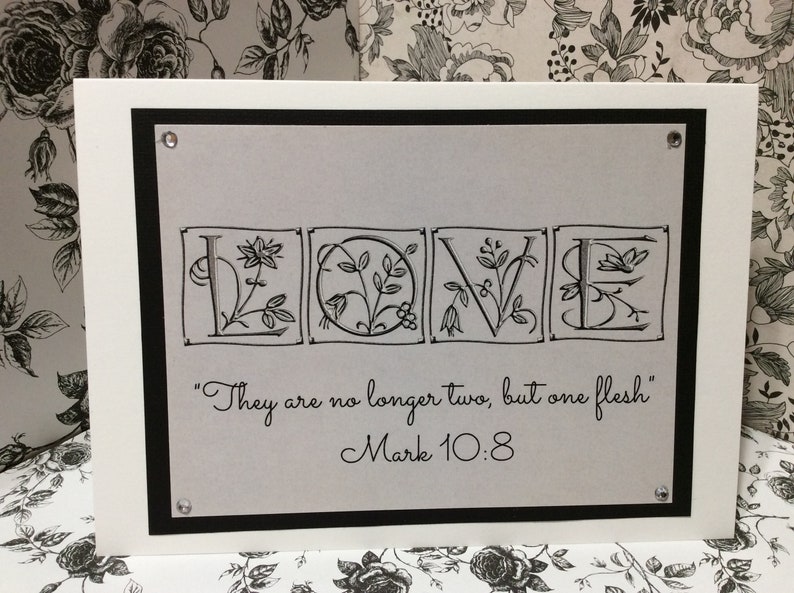 LOVE
"They are no longer two, but one flesh"
Mark 10:8